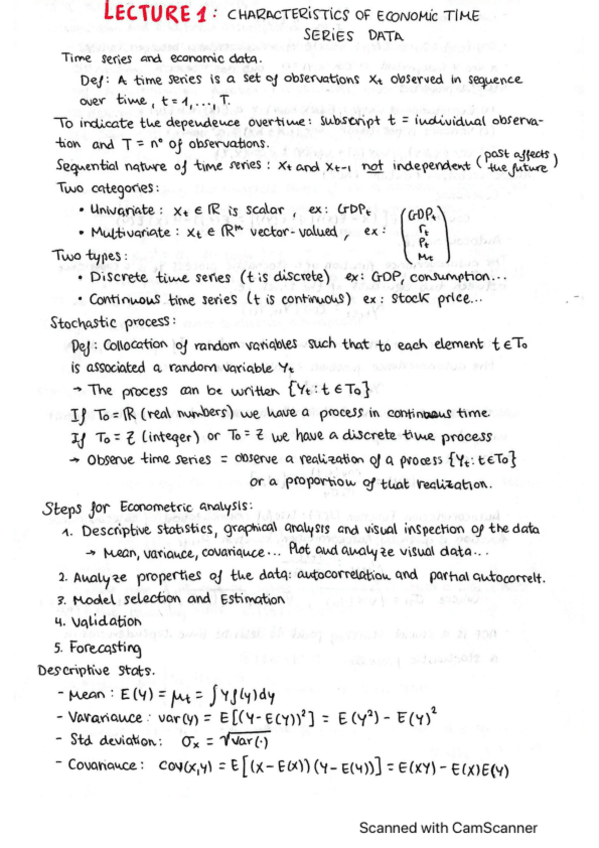 LECTURE 1: CHARACTERISTICS OF ECONOMIC TIME
SERIES DATA
Time series and economic data.
Def: A time series is a set of observations Xt observed in sequence
over time, t = 1, ..., T.
To indicate the dependence overtime: subscript t = individual observa-
tion and T = nº of observations.
Sequential nature of time series: Xt and Xt-1 not independent (past affects
the future
Two categories:
• Univariate: Xt ∈ ℝ is scalar, ex: GDPt
• Multivariate: Xt ∈ ℝᵐ vector-valued, ex: (GDPt
rt
Pt
Mt)
Two types:
• Discrete time series (t is discrete) ex: GDP, consumption...
• Continuous time series (t is continuous) ex: stock price...
Stochastic process:
Def: Collocation of random variables such that to each element t ∈ To
is associated a random variable Yt
→ The process can be written {Yt : t ∈ To}
If To = ℝ (real numbers) we have a process in continuous time.
If To = Z (integer) or To = Z we have a discrete time process
→ Observe time series = observe a realization of a process {Yt : t ∈ To}
or a proportion of that realization.
Steps for Econometric analysis:
1. Descriptive statistics, graphical analysis and visual inspection of the data
→ Mean, variance, covariance... Plot and analyze visual data...
2. Analyze properties of the data: autocorrelation and partial autocorrelt.
3. Model selection and Estimation
4. Validation
5. Forecasting
Descriptive stats.
- Mean: E(Y) = μt = ∫ Y f(y) dy
- Varariance: var(y) = E[(Y - E(Y))²] = E(Y²) - E(Y)²
- Std deviation: σx = √var(·)
- Covariance: cov(x,y) = E[(X - E(X))(Y - E(Y))] = E(XY) - E(X)E(Y)
Scanned with CamScanner